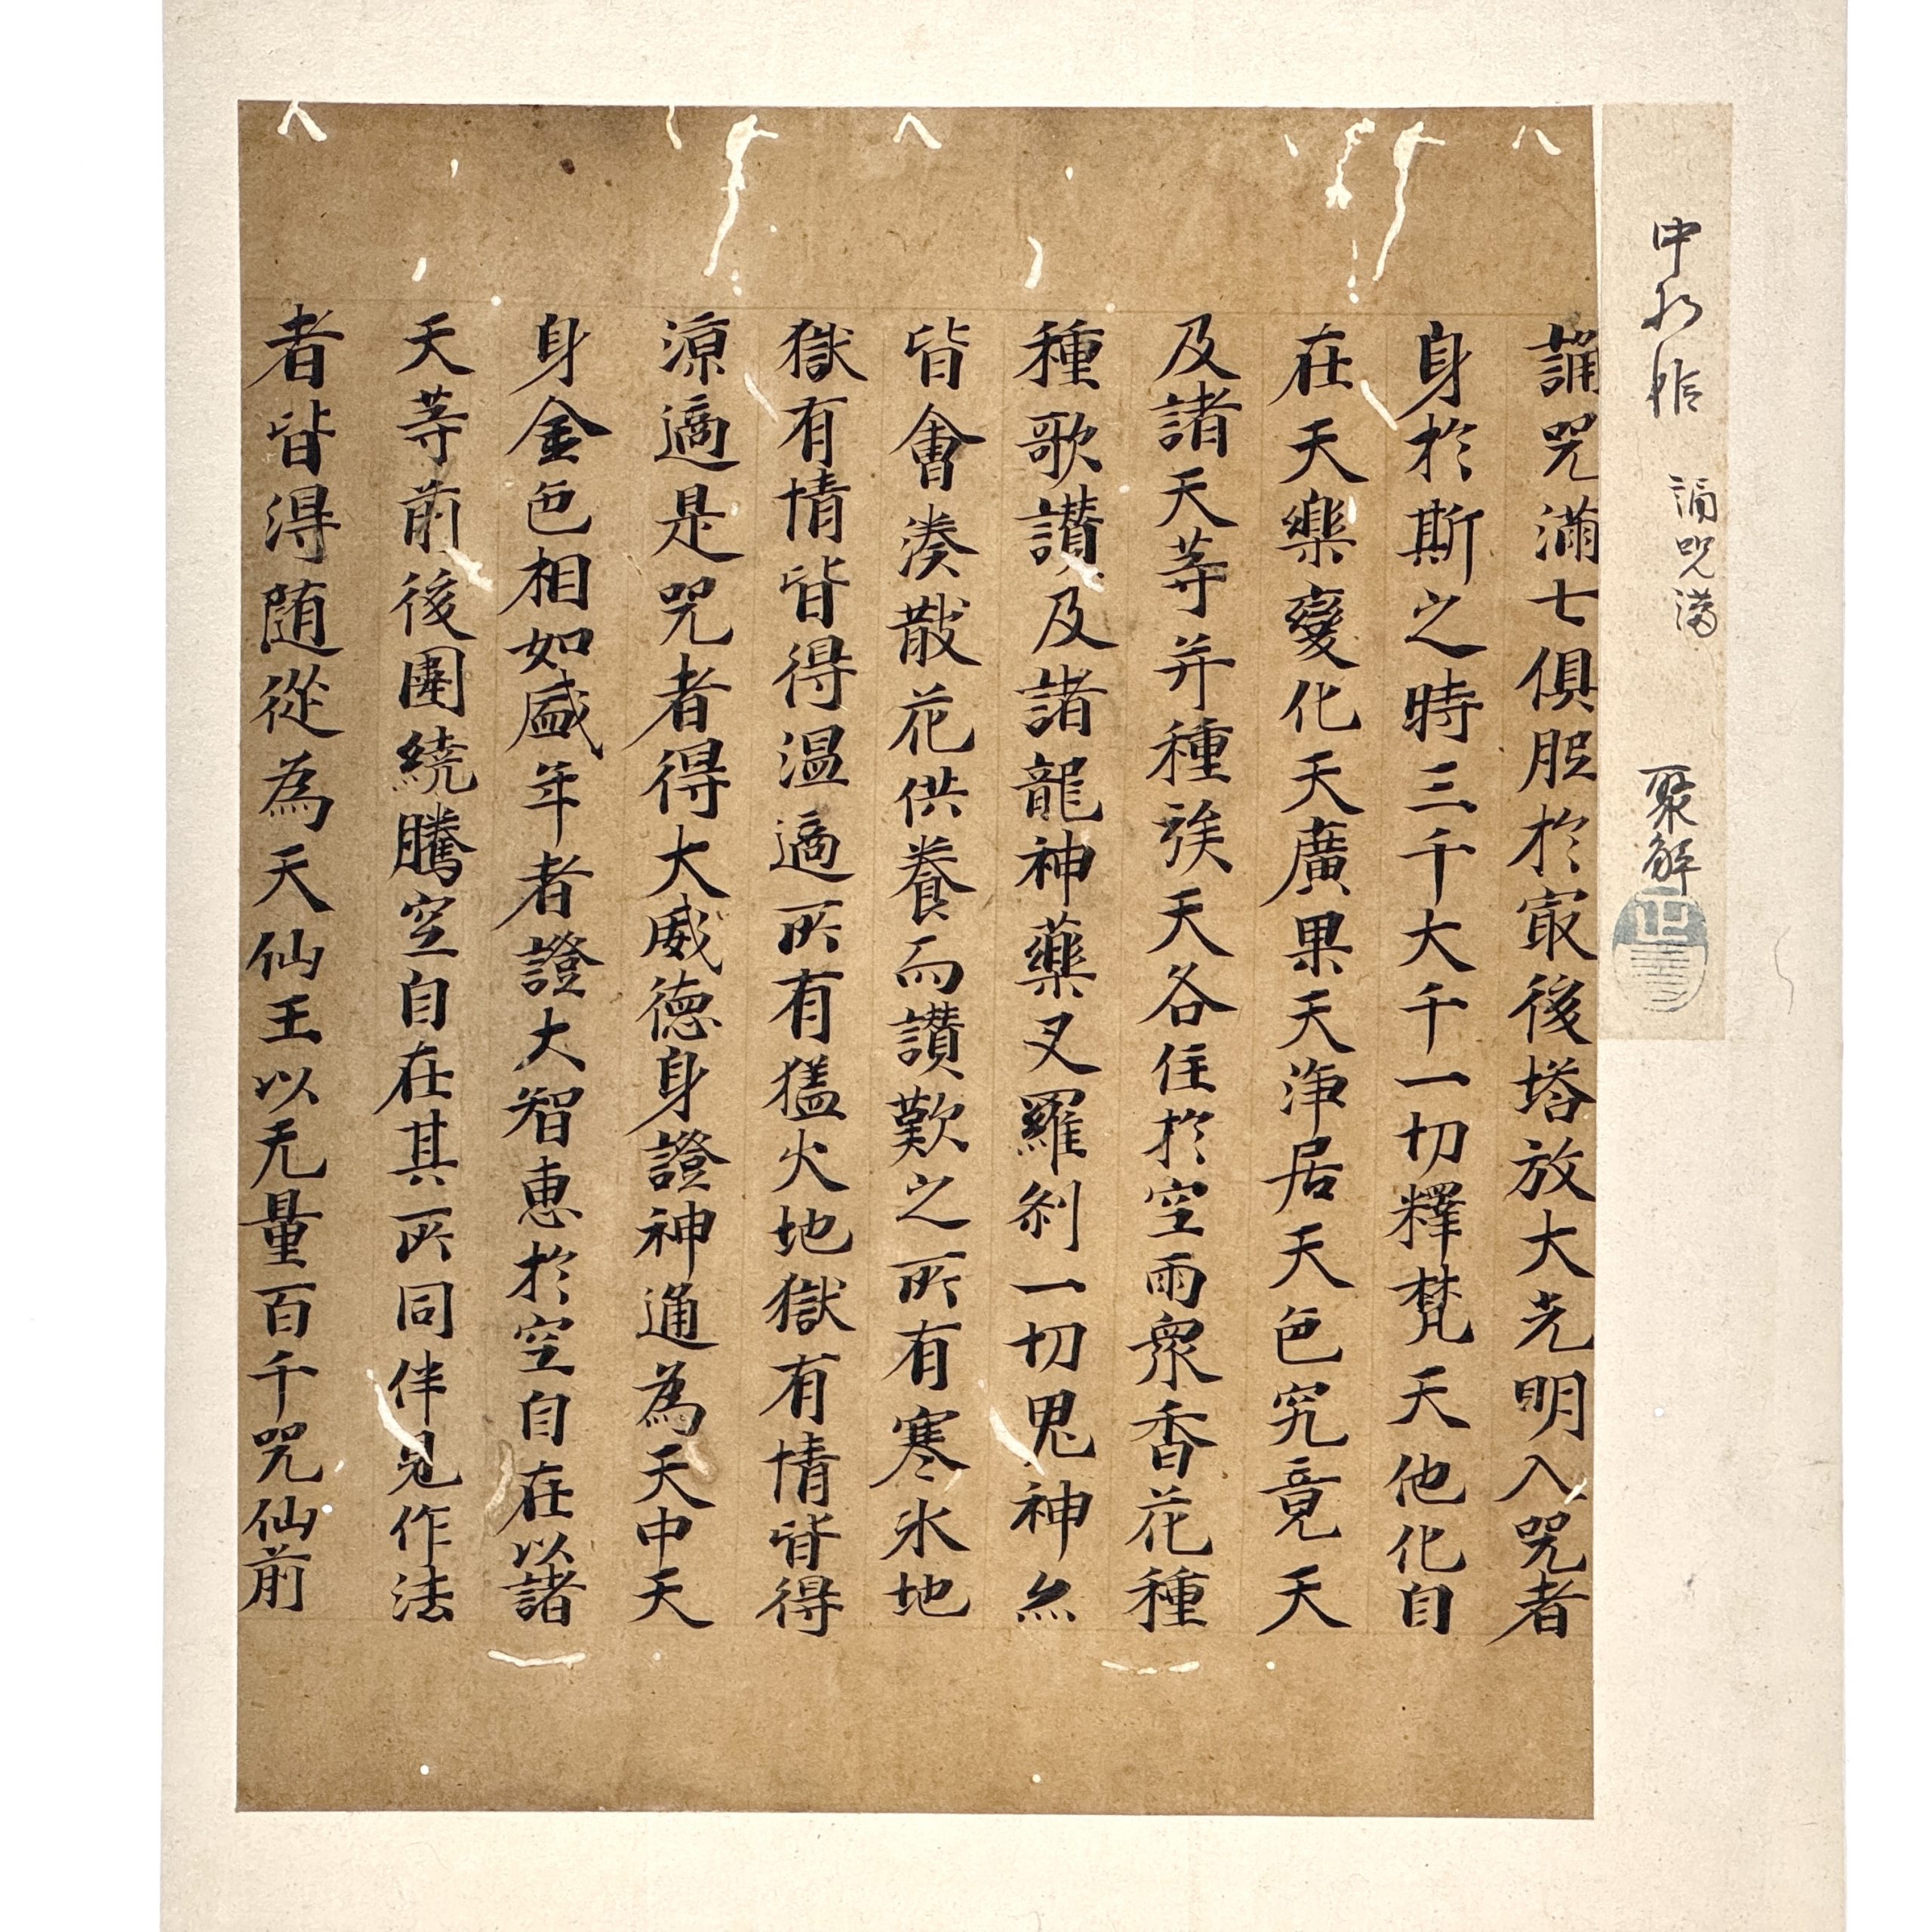 誦咒滿七俱胝於㝡後塔放大光明入咒者
身於斯之時三千大千一切釋梵天他化自
在天樂變化天廣果天淨居天色究竟天
及諸天等并種族天各住於空雨衆香花種
種歌讚及諸龍神藥叉羅刹一切鬼神㷊
皆會湊散花供養而讚歎之所有寒氷地
獄有情皆得温適所有猛火地獄有情皆得
涼適是咒者得大威德身證神通為天中天
身金色相如盛年者證大智惠於空自在以諸
天等前後圍繞騰空自在其所同伴見作法
者皆得随從為天仙王以无量百千咒仙前
誦咒滿